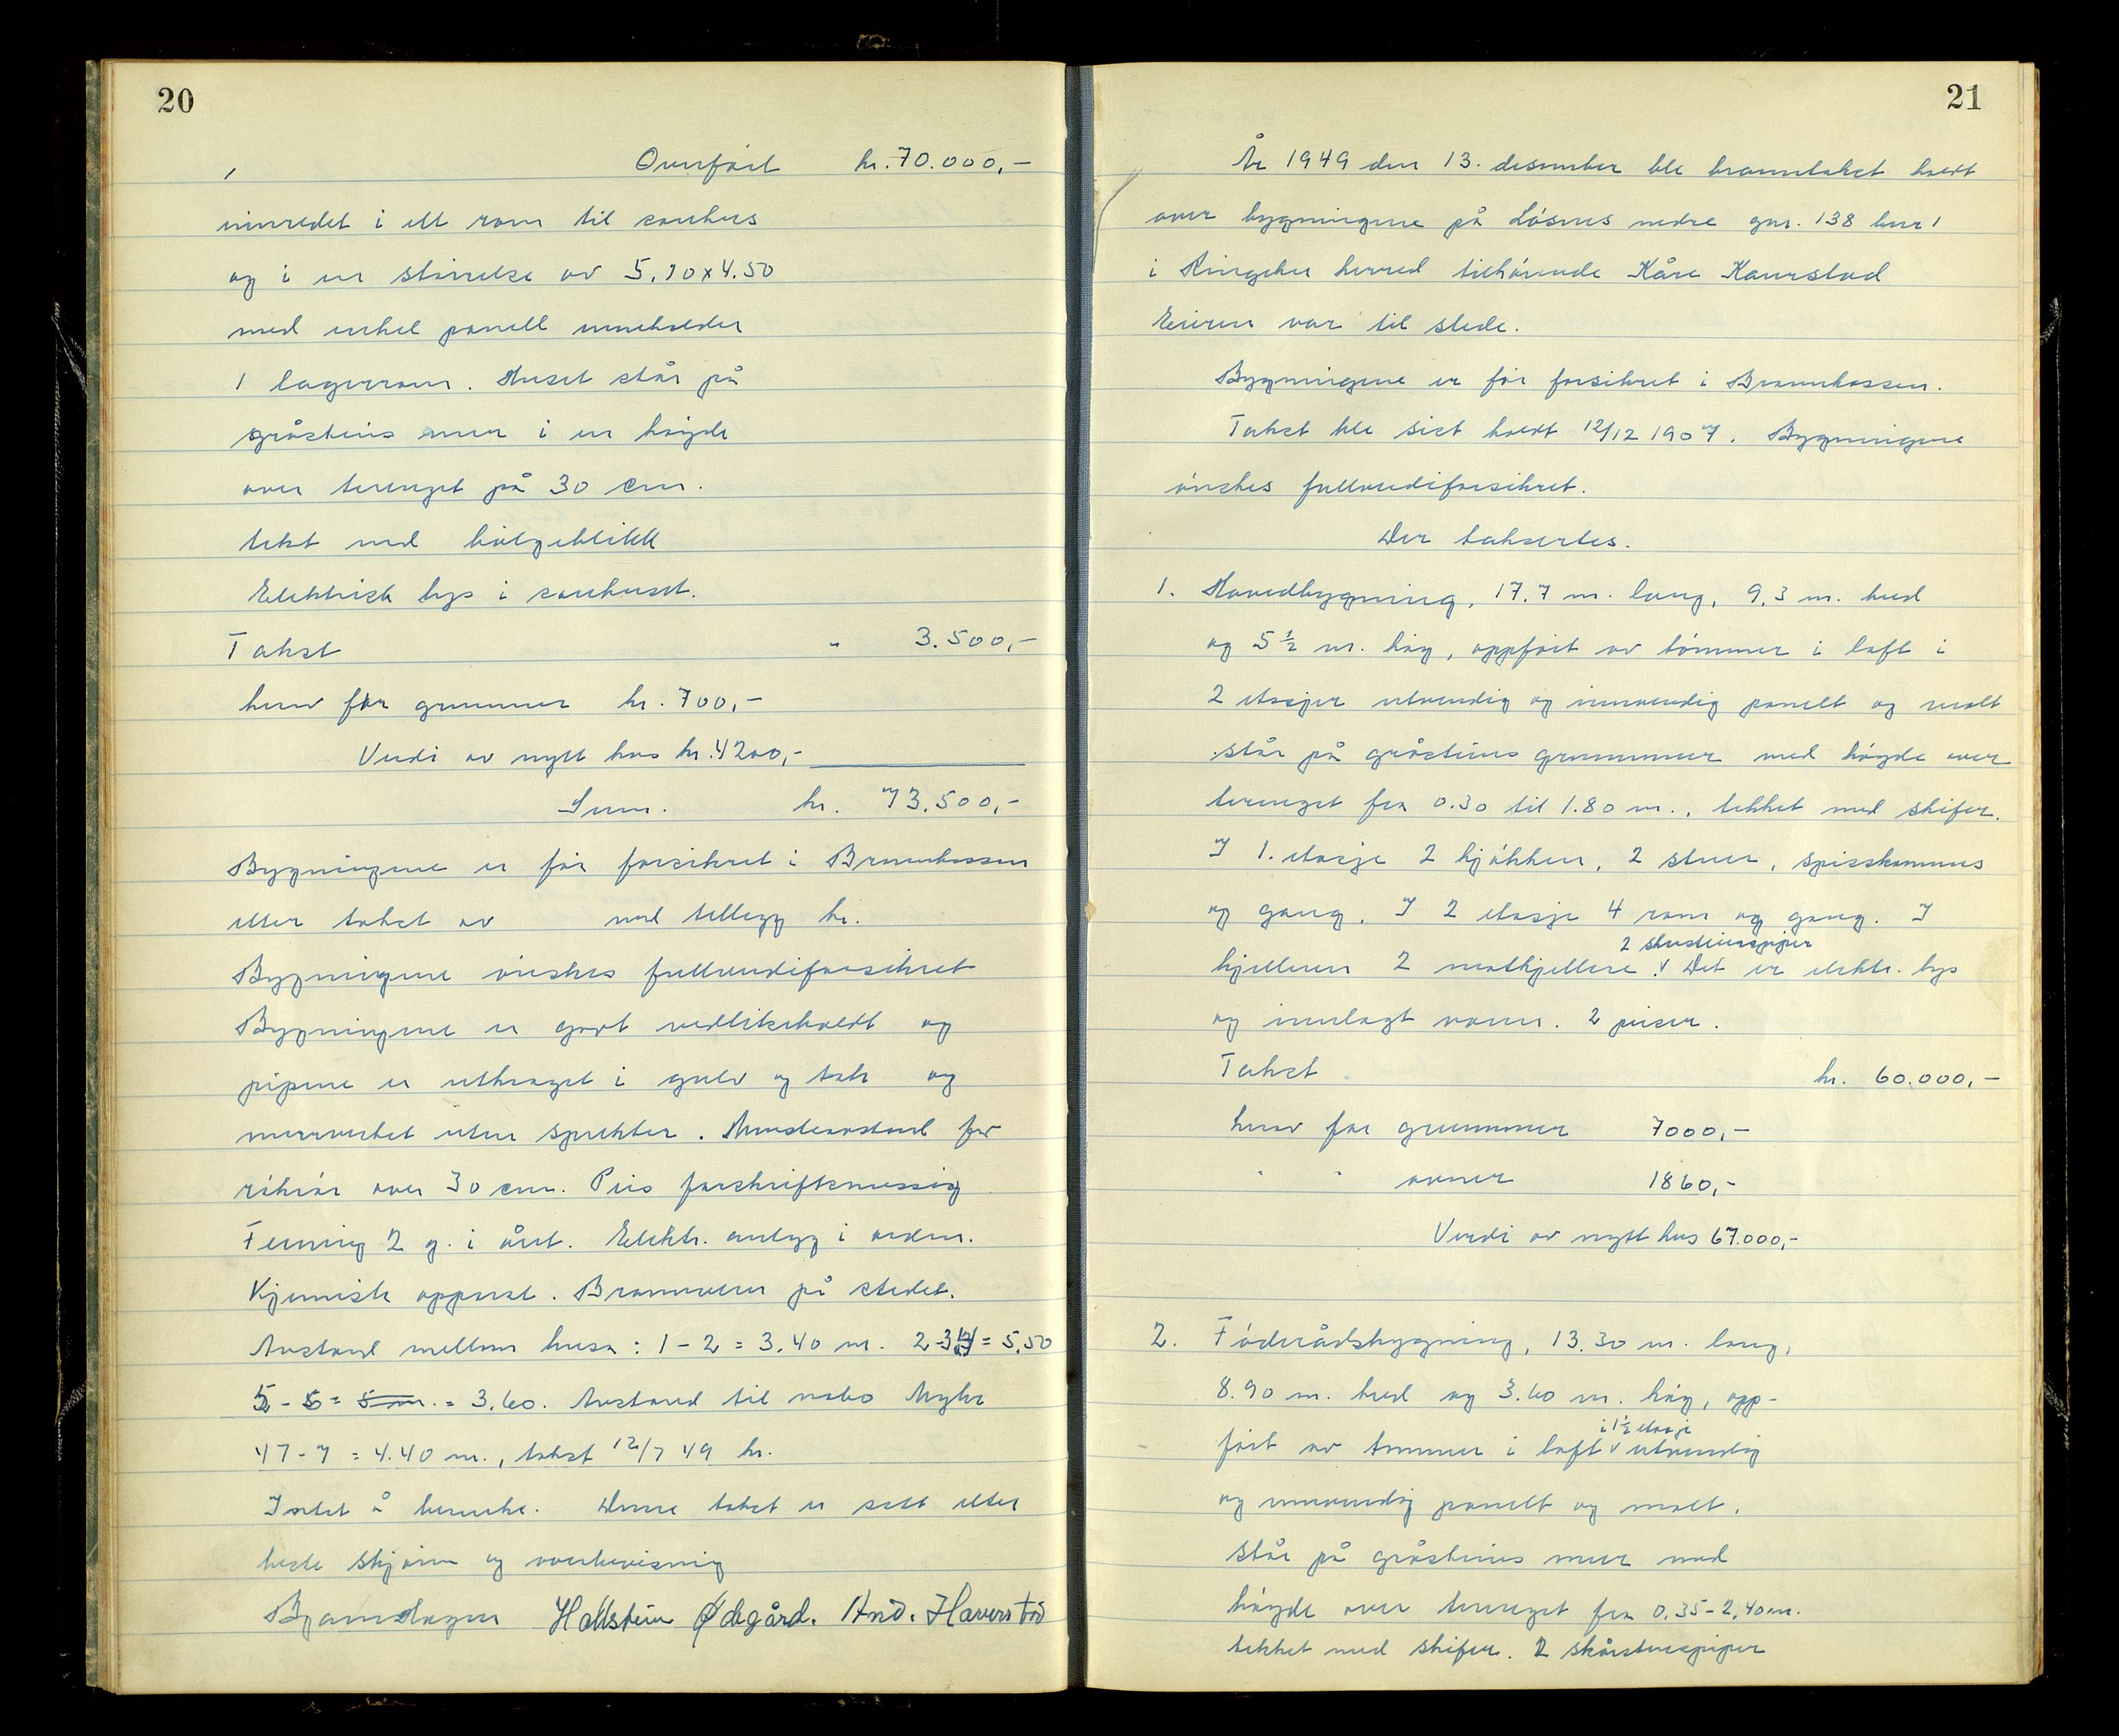 20
Overført kr. 70.000,-
innredet i ett rom til sauhus
og i en størrelse av 5,70x4.50
med enkel panell inneholder
1 lagerrom. Huset står på
gråsteins mur i en høyde
over terenget på 30 cm.
tekt med bølgeblikk
Elektrisk lys i sauhuset.
Takst " 3.500,-
herav for grunnmur kr. 700,-
Verdi av nytt hus kr. 4200,-
Sum. kr. 73.500,-
Bygningene er før forsikret i Brannkassen
etter takst av med tillegg kr.
Bygningene ønskes fullverdiforsikret
Bygningene er godt vedlikeholdt og
pipene er utkraget i gulv og tak og
murverket uten sprekker. Mursteavstand for
rökrör over 30 cm. Peis forskriftsmessig
Feiing 2 g. i året. Elektr. anlegg i orden.
Kjemisk apparat. Brannvern på stedet.
Avstand mellom husa: 1-2 = 3.40 m. 2-3 = 5,50
5-6 = 5 m. = 3.60. Avstand til nabo Myhr
47-7 = 4.40 m., takst 12/7 49 kr.
Intet å bemerke. Denne takst er satt etter
beste skjønn og overbevisning
Hallstein Ødegård. And. Haverstad
21
År 1949 den 13. desember ble branntakst holdt
over bygningene på Løsnes nedre gnr. 138 bnr 1
i Ringebu herred tilhørende Kåre Kaurstad
Eieren var til stede.
Bygningene er før forsikret i Brannkassen.
Takst ble sist holdt 12/12 1907. Bygningene
ønskes fullverdiforsikret.
Der taksertes.
1. Hovedbygning, 17.7 m. lang, 9,3 m. bred
og 5 1/2 m. høg, oppført av tømmer i laft i
2 etasjer utvendig og innvendig panelt og malt
står på gråsteins grunnmur med høgde over
terenget fra 0.30 til 1.80 m., tekket med skifer.
I 1. etasje 2 kjøkken, 2 stuer, spisskammers
og gang. I 2 etasje 4 rom og gang. I
2 skorsteinspiper
kjelleren 2 matkjellere. v Det er elektr. lys
og innlagt vann. 2 peiser.
Takst kr. 60.000,-
herav for grunnmur 7000,-
" " ovner 1860,-
Verdi av nytt hus 67.000,-
2. Föderådsbygning, 13.30 m. lang,
8.90 m. bred og 3.60 m. høg, opp-
i 1 1/2 etasje
ført av tømmer i laft v utvendig
og innvendig panelt og malt.
står på gråsteins mur med
høgde over terenget fra 0,35-2,40 m.
tekket med skifer. 2 skårsteinspiper